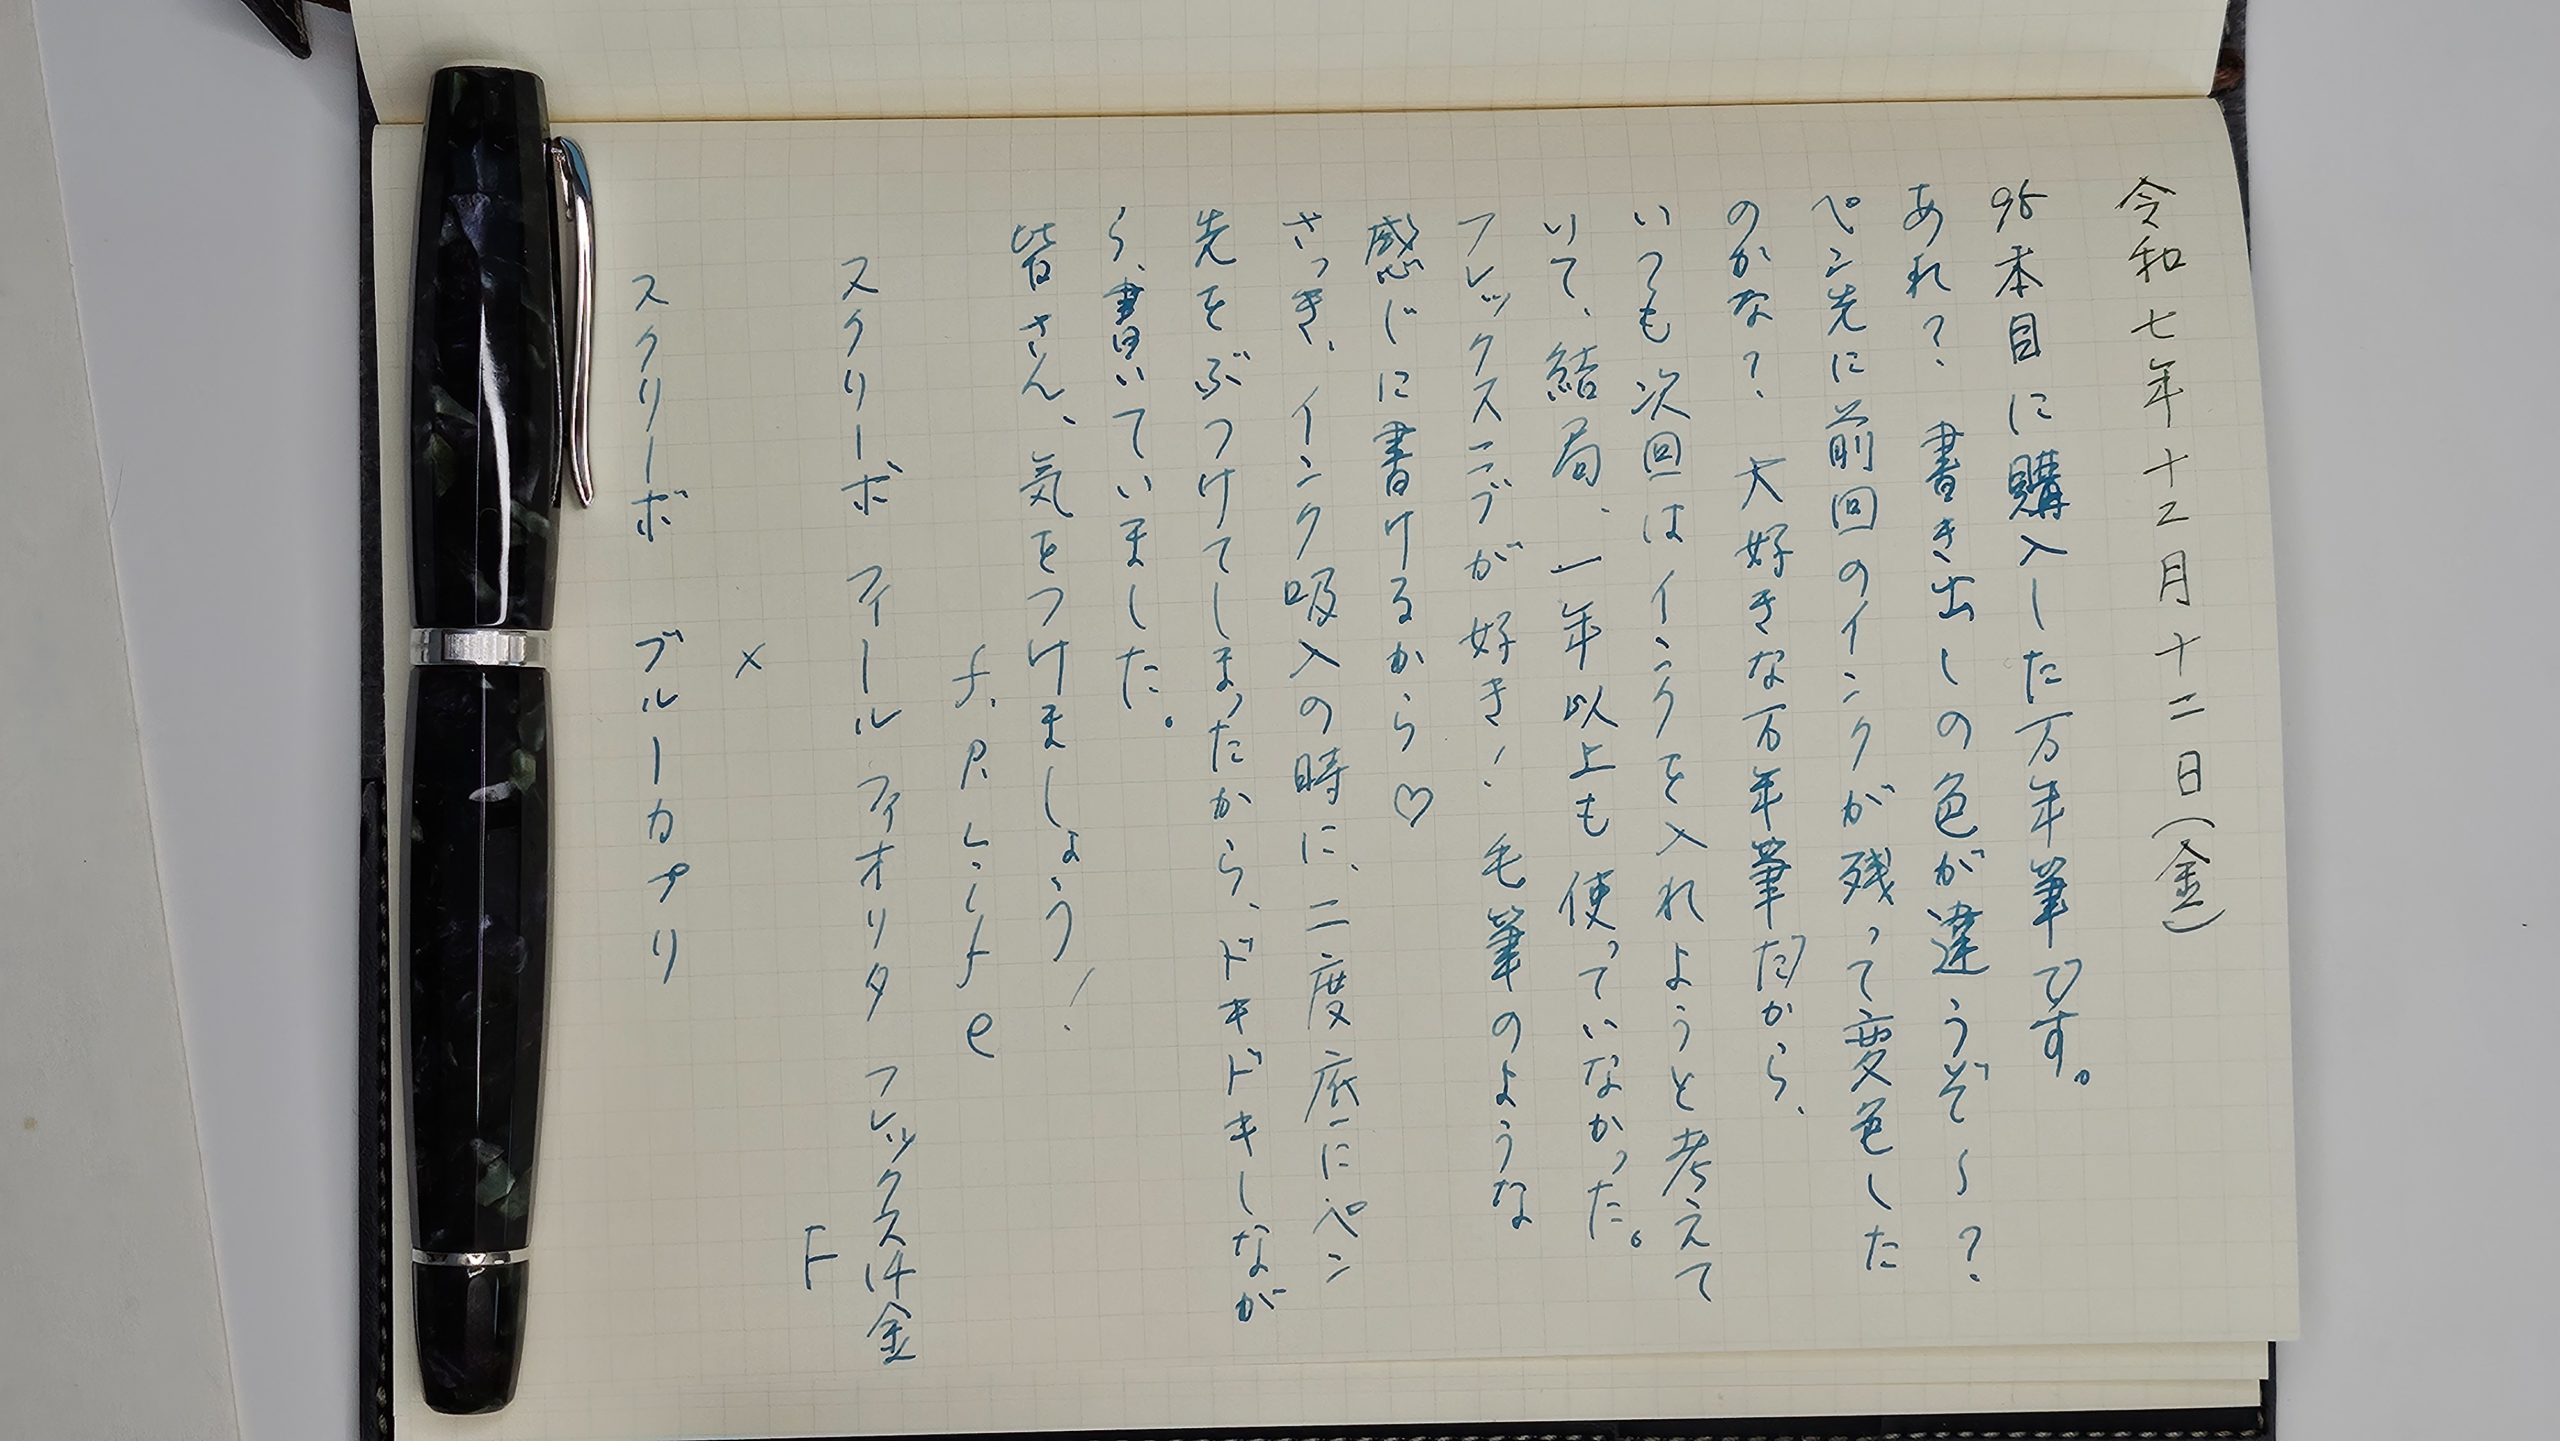 令和七年十二月十二日(金)
95本目に購入した万年筆です。
あれ？書き出しの色が違うぞ〜？
ペン先に前回のインクが残って変色した
のかな？大好きな万年筆だから、
いつも次回はインクを入れようと考えて
いて、結局、一年以上も使っていなかった。
フレックスニブが好き！毛筆のような
感じに書けるから♡
さっき、インク吸入の時に、二度底にペン
先をぶつけてしまったから、ドキドキしなが
ら、書いていました。
皆さん、気をつけましょう！
f.P.Life
スクリーボ フィール フィオリタ フレックス14金
F
×
スクリーボ ブルーカプリ